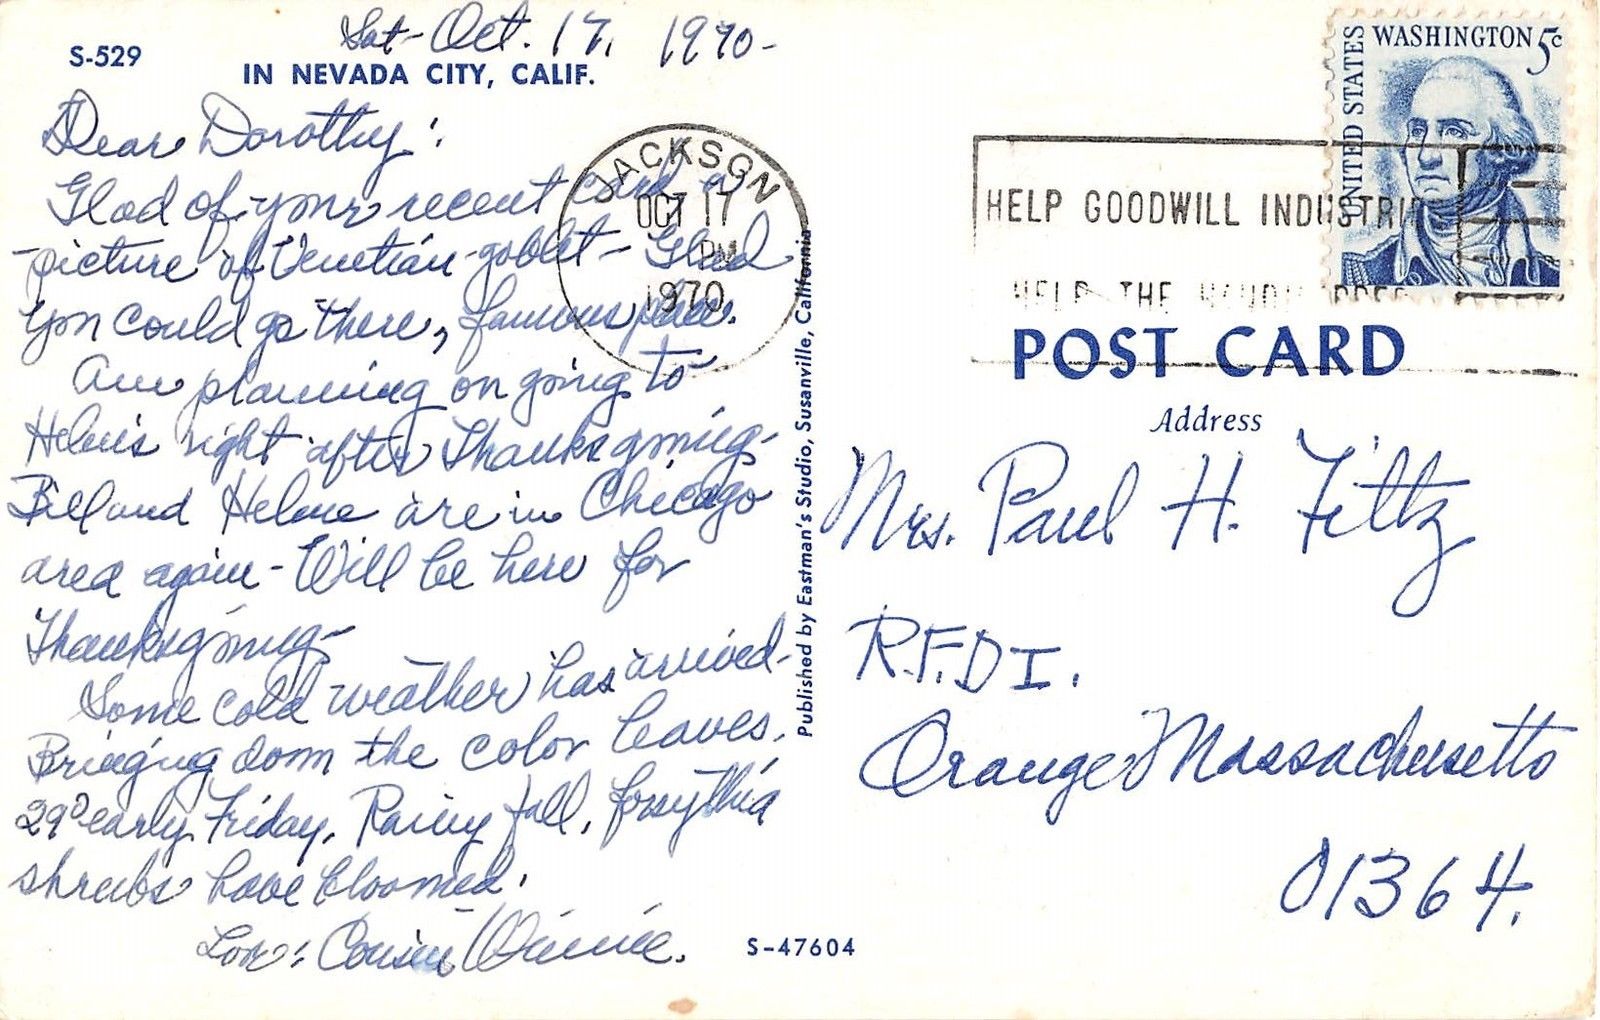 Sat- Oct. 17, 1970-
S-529
IN NEVADA CITY, CALIF.
Dear Dorothy:
Glad of your recent card a
picture of Venetian goblet - Glad
you could go there, famous place.
Am planning on going to
Helen's right after Thanksgiving-
Bill and Helene are in Chicago
area again - Will be here for
Thanksgiving-
Some cold weather has arrived-
Bringing down the color leaves.
29° early Friday. Rainy fall, forsythia
shrubs have bloomed.
Love: Cousin Winnie.
S-47604
Published by Eastman's Studio, Susanville, California
JACKSON
OCT 17
PM
1970
HELP GOODWILL INDUSTRIES
HELP THE HANDICAPPED
UNITED STATES
WASHINGTON 5c
POST CARD
Address
Mrs. Paul H. Filtz
R.F.D I.
Orange Massachusetts
01364.